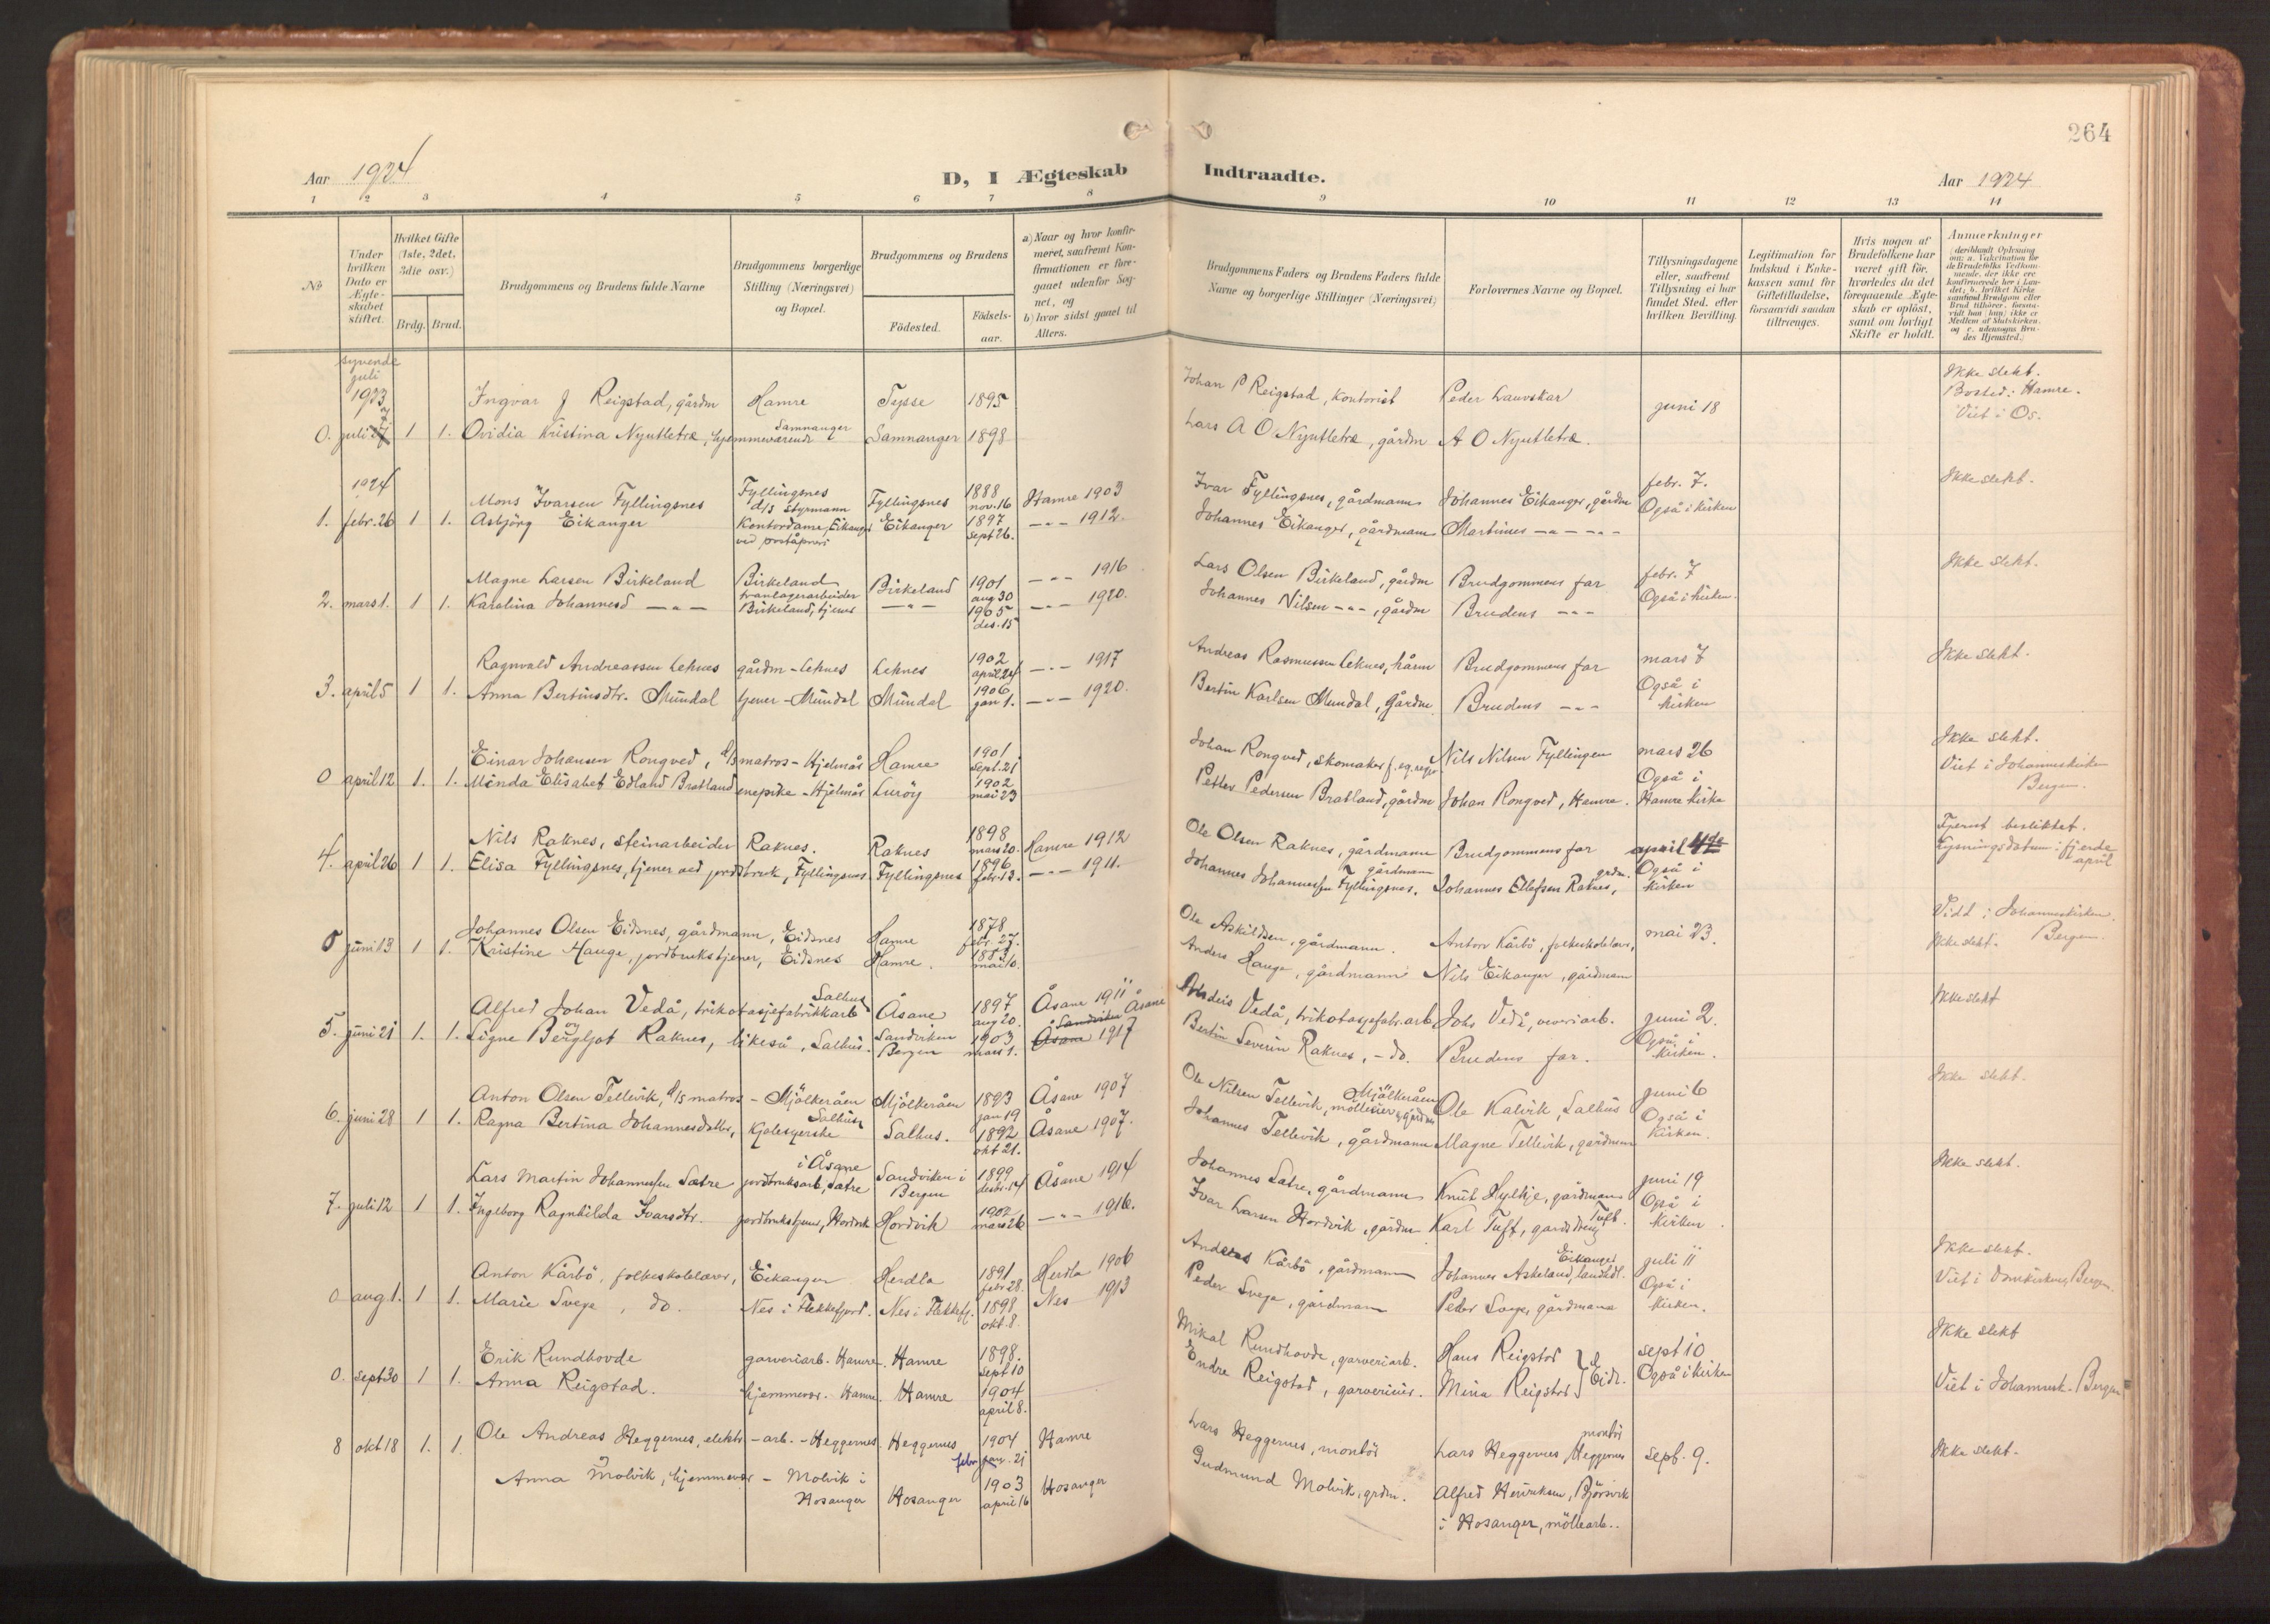 264
Aar 1924
D, I Ægteskab
Indtraadte.
Aar 1924
1 2 3 4 5 6 7 8 9 10 11 12 13 14
No
Under hvilken Dato er Ægteskabet stiftet.
Hvilket Gifte (1ste, 2det, 3die osv.)
Brdg. Brud.
Brudgommens og Brudens fulde Navne
Brudgommens borgerlige Stilling (Næringsvei) og Bopæl.
Brudgommens og Brudens
Fødested.
Fødselsaar.
a) Naar og hvor konfirmeret, saafremt Konfirmationen er foregaaet udenfor Sognet, og
b) hvor sidst gaaet til Alters.
Brudgommens Faders og Brudens Faders fulde Navne og borgerlige Stillinger (Næringsvei)
Forlovernes Navne og Bopæl.
Tillysningsdagene eller, saafremt Tillysning ei har fundet Sted, efter hvilken Bevilling.
Legitimation for Indskud i Enkekassen samt for Giftetilladelse, forsaavidt saadan tiltrænges.
Hvis nogen af Brudefolkene har været gift før, hvorledes da det foregaaende Ægteskab er opløst, samt om lovligt Skifte er holdt.
Anmerkninger
(deriblandt Oplysning om: a. Vakcination for de Brudefolks Vedkommende, der ikke ere konfirmerede her i Landet; b. hvilket Kirkesamfund Brudgom eller Brud tilhører, forsaavidt han (hun) ikke er Medlem af Statskirken, og c. udensogns Brudes Hjemsted.)
syvende juli
1923
Ingvar J Reigstad, gårdm Hamre Tysse 1895 Johan P Reigstad, kontorist Peder Lauvskar juni 18 Ikke slekt. Bosted: Hamre. Viet i Os.
0. juli 7 1 1. Ovidia Kristina Nyutletræ, hjemmeværende Samnanger Samnanger 1898 Lars A O Nyutletræ, gårdm A O Nyutletræ.
1924
Mons Ivarsen Fyllingsnes Fyllingsnes d/s styrmann Fyllingsnes 1888 nov. 16 Hamre 1903 Ivar Fyllingsnes, gårdmann Johannes Eikanger, gårdm febr. 7. Ikke slekt.
1. febr. 26 1 1. Asbjörg Eikanger Kontordame, Eikanger ved poståpneri Eikanger 1897 sept 26. -"- 1912. Johannes Eikanger, gårdmann Martinus -"- -"- Også i kirken
Magne Larsen Birkeland Birkeland tranlagerarbeider Birkeland 1901 aug 30 -"- 1916 Lars Olsen Birkeland, gårdm Brudgommens far febr. 7 Ikke slekt.
2. mars 1. 1 1. Karolina Johannesd -"- Birkeland, tjener -"- 1905 des. 15 -"- 1920. Johannes Nilsen -"-, gårdm Brudens -"- Også i kirken.
Ragnvald Andreassen Leknes gårdm - Leknes Leknes 1902 april 24 -"- 1917 Andreas Rasmussen Leknes, kårm Brudgommens far mars 7 Ikke slekt.
3. april 5 1 1. Anna Bertinsdtr. Mundal tjener - Mundal Mundal 1906 jan 1. -"- 1920. Bertin Karlsen Mundal, gårdm Brudens -"- Også i kirken
Einar Johansen Rongved, d/s matros - Hjelmås Hamre 1901 sept. 21 Johan Rongved, skomaker f. eg. regn Nils Nilsen Fyllingen mars 26 Ikke slekt.
0 april 12 1. 1. Minda Elisabet Edland Bratland enepike - Hjelmås Luröy 1902 mai 23 Petter Pedersen Bratland, gårdm Johan Rongved, Hamre. Også i Hamre kirke Viet i Johanneskirken Bergen.
Nils Raknes, steinarbeider Raknes. Raknes 1898 mars 20. Hamre 1912 Ole Olsen Raknes, gårdmann Brudgommens far april 4de Fjernt besliktet. Lysningsdatum: fjerde april
4. april 26 1 1. Elisa Fyllingsnes, tjener ved jordbruk, Fyllingsnes. Fyllingsnes 1896 febr. 13. -"- 1911. Johannes Johannessen Fyllingsnes, gårdmann Johannes Ellefsen Raknes, grdm. Også i kirken
Johannes Olsen Eidsnes, gårdmann, Eidsnes Hamre 1878 febr. 27. Ole Askildsen, gårdmann. Anton Kårbö, folkeskolelærer, mai 23. Vidd i Johanneskirken. Bergen.
0 juni 13 1 1. Kristine Hauge, jordbrukstjener, Eidsnes Hamre. mai 6. Anders Hauge, gårdmann Nils Eikanger, gårdmann Ikke slekt.
Alfred Johan Vedå, trikotasjefabrikkarb Salhus Åsane 1897 aug 20. Åsane 1911 Andreis Vedå, trikotasjefabr.arb Johs Vedå, veveriarb. juni 2. Ikke slekt
5. juni 21 1. 1. Signe Bergljot Raknes, likeså, Salhus. Sandviken Bergen 1903 mars 1. Åsane Sandviken Åsane 1917 Bertin Severin Raknes, - do. Brudens far. Også i kirken.
Anton Olsen Tellevik, d/s matros - Mjölkeråen Mjölkeråen 1893 jan 19 Åsane 1907 Ole Nilsen Tellevik, Mjölkeråen möllesvier & gårdm Ole Kalvik, Salhus juni 6 Ikke slekt.
6. juni 28 1 1. Ragna Bertina Johannesdatter, Kjolesyerske Salhus Salhus. 1892 okt 21. Åsane 1907. Johannes Tellevik, gårdmann Magne Tellevik, gårdmann Også i kirken.
Lars Martin Johannessen Sætre jordbruksarb, Sætre i Åsane Sandviken i Bergen 1899 desbr. 14 Åsane 1914 Johannes Sætre, gårdmann Knut Hylkje, gårdmann juni 19 Ikke slekt.
7. juli 12 1 1. Ingeborg Ragnhilda Ivarsdtr. jordbrukstjener, Hordvik Hordvik 1902 mars 26 -"- 1916. Ivar Larsen Hordvik, gårdm Karl Tuft, gardsdreng Tuft. Også i kirken.
Anton Kårbö, folkeskolelærer, Eikanger Herdla 1891 febr 28. Herdla 1906 Andreas Kårbö, gårdmann Johannes Askeland, landhdl. Eikanger juli 11 Ikke slekt.
0 aug 1. 1 1. Marie Svege, do. Nes i Flekkefjord. Nes i Flekkefj. 1898 okt. 8. Nes 1913 Peder Svege, gårdmann Peder Svege, gårdmann Også i kirken. Viet i Domkirken, Bergen.
Erik Rundhovde garveriarb. Hamre. Hamre 1898. sept 10 Mikal Rundhovde, garveriarb. Hans Reigstad sept 10 Ikke slekt
0. sept 30 1 1. Anna Reigstad. hjemmevær. Hamre. Hamre 1904 april 8. Endre Reigstad, garverieier. Mina Reigstad Eidr. Også i kirken Viet i Johannesk. Bergen
8 okt 18 1. 1. Ole Andreas Heggernes, elektr - arb. - Heggernes. Heggernes 1904 febr. 21 Hamre Lars Heggernes, montör Lars Heggernes, montör Heggernes sept. 9. Ikke slekt.
Anna Molvik, hjemmevær - Molvik i Hosanger Hosanger 1903 april 16 Hosanger Gudmund Molvik, grdm. Alfred Henriksen, Björsvik i Hosanger, möllearb.